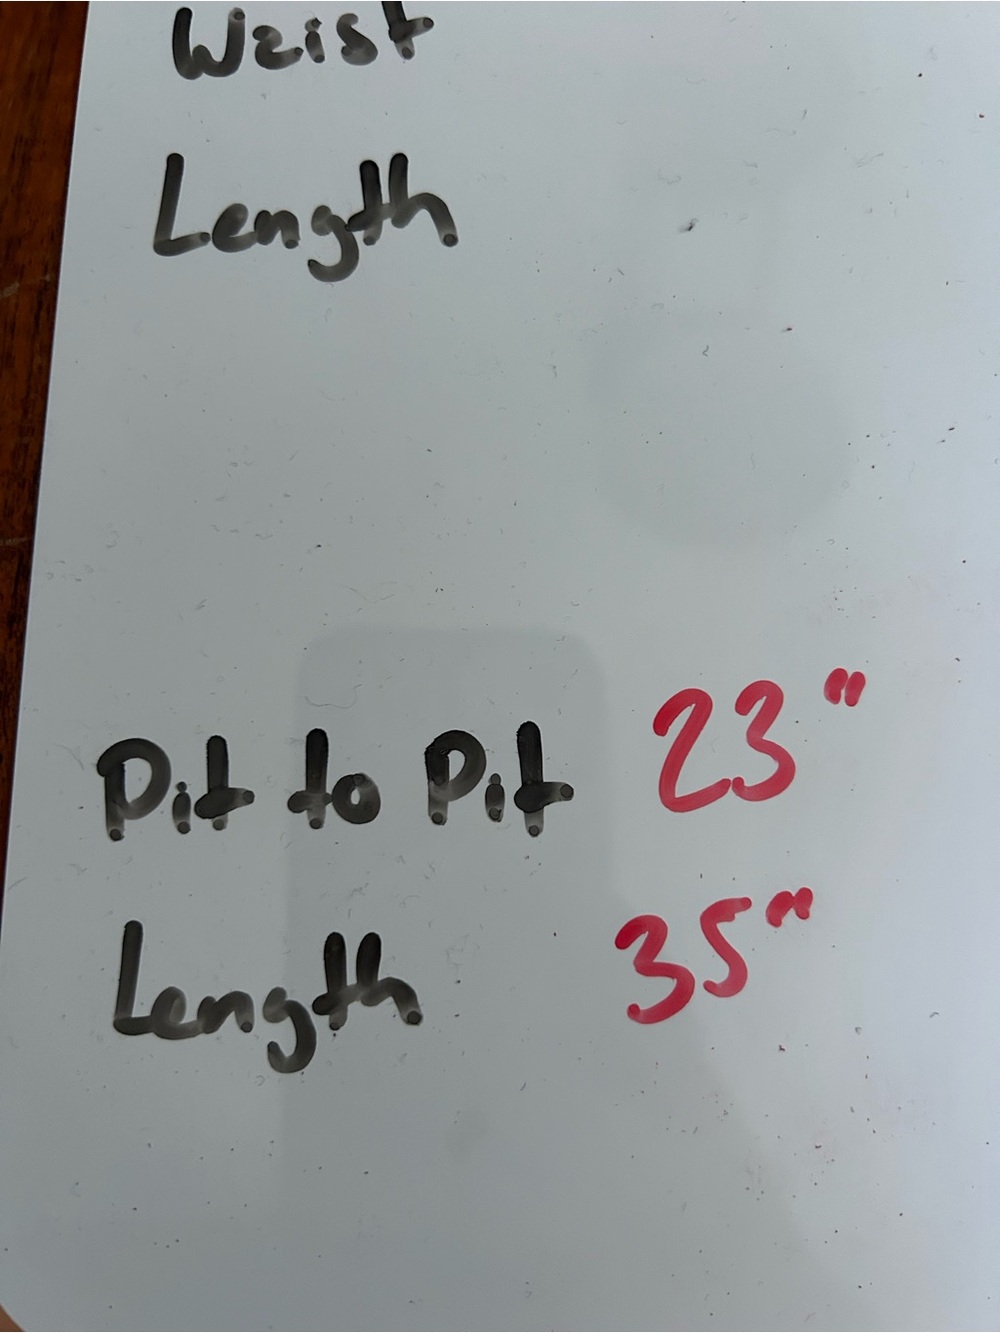 Waist
Length
Pit to Pit 23"
Length 35"